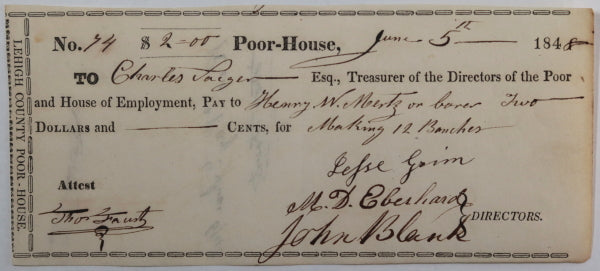 LEHIGH COUNTY POOR-HOUSE.
No. 74 $ 2=00 Poor-House, June 5th 1848
TO Charles Saeger Esq., Treasurer of the Directors of the Poor
and House of Employment, PAY to Henry W. Mertz or barer Two
DOLLARS and CENTS, for Making 12 Banches
Jesse Grim
Attest M. D. Eberhard
Thos Faust John Blank DIRECTORS.